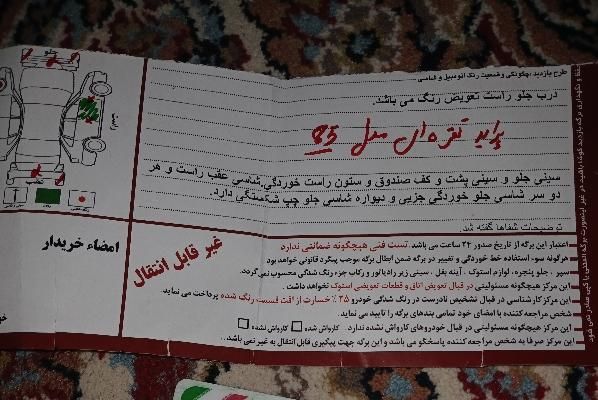 طرح بازدید چگونگی وضعیت رنگ اتومبیل و شاسی
درب جلو راست تعویض رنگ می باشد.
پراید نقره ای مدل 85
سینی جلو و سینی پشت و کف صندوق و ستون راست خوردگی.شاسی عقب راست و هر
دو سر شاسی جلو خوردگی جزیی و دیواره شاسی جلو چپ شکستگی دارد.
توضیحات شفاها گفته شد.
راست
عقب
امضاء خریدار
غیر قابل انتقال
اعتبار این برگه از تاریخ صدور ۲۴ ساعت می باشد. تست فنی هیچگونه ضمانتی ندارد
هرگونه سوء استفاده خط خوردگی و تغییر در برگه ضمن ابطال برگه موجب پیگرد قانونی خواهد بود
سپر . جلو پنجره، لوازم استوک . آینه بغل . سینی زیر رادیاتور و رکاب جزء رنگ شدگی محسوب نمی گردد.
این مرکز هیچگونه مسئولیتی در قبال تعویض اتاق و قطعات تعویضی استوک نخواهد داشت.
این مرکز کارشناسی در قبال تشخیص نادرست در رنگ شدگی خودرو ۲۵٪ خسارت از افت قسمت رنگ شده پرداخت می نماید.
شخص مراجعه کننده با امضای خود تمامی بندهای برگه را تایید می نماید.
این مرکز هیچگونه مسئولیتی در قبال خودروهای کارواش نشده ندارد. کارواش شده کارواش نشده
این مرکز صرفا به شخص مراجعه کننده پاسخگو می باشد و این برگه جهت پیگیری قابل انتقال به غیر نمی باشد.